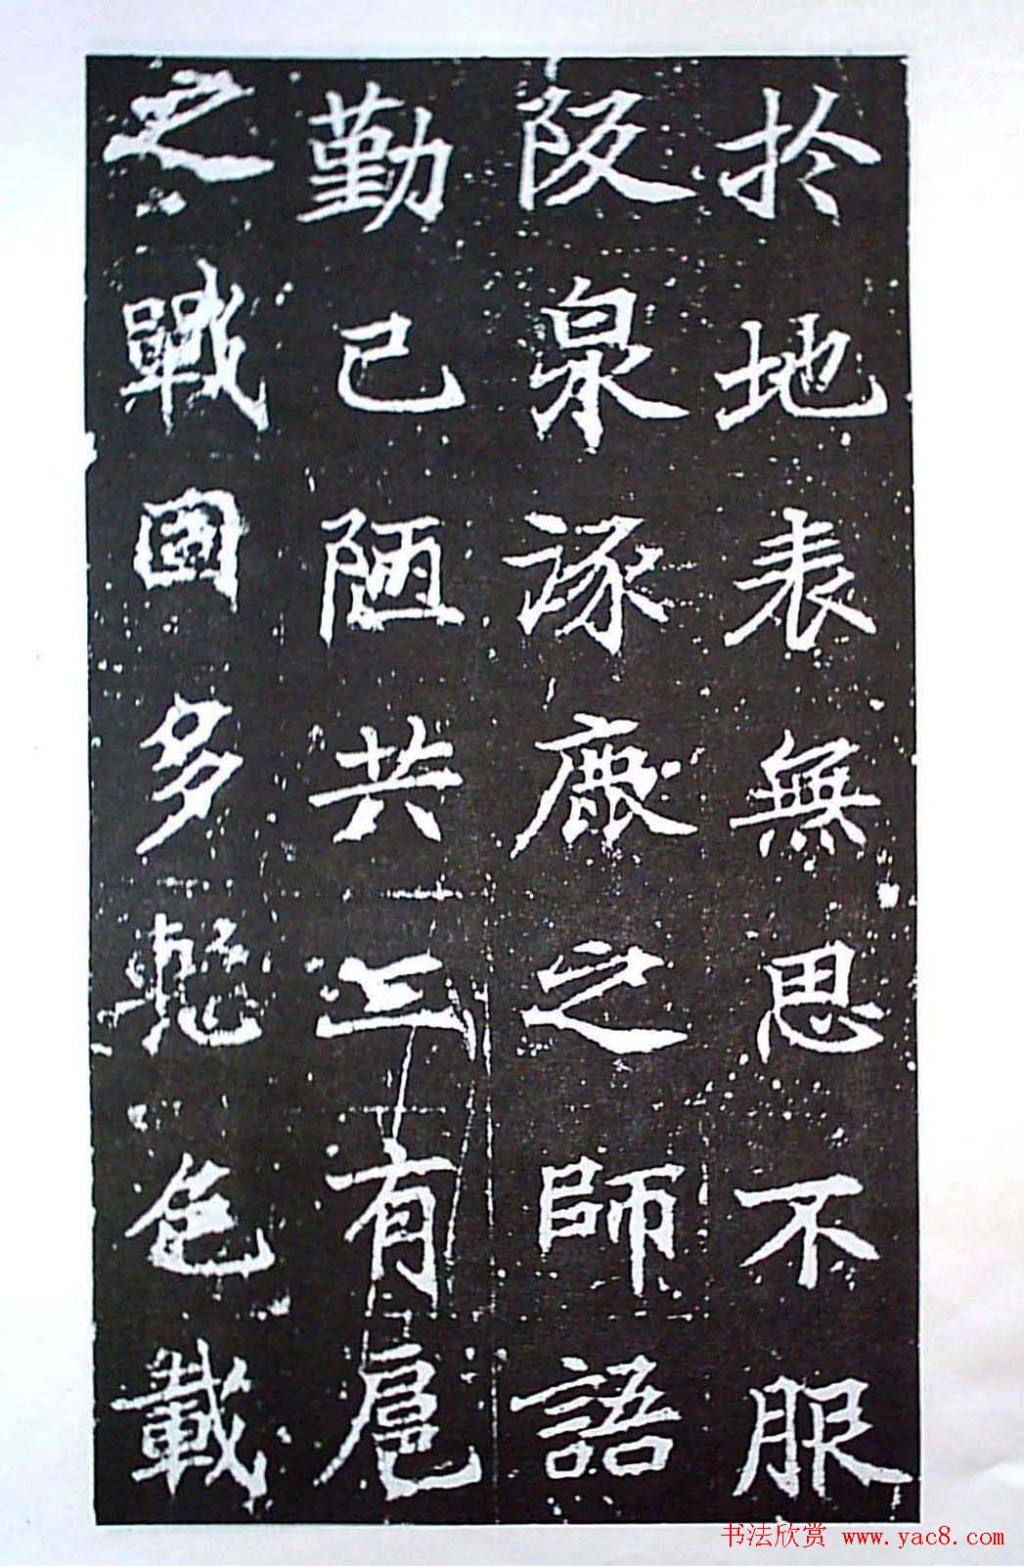 於地表無思不服
阪泉諑鹿之師語
勤已陋共工有扈
之戰國多慙色載
书法欣赏 www.yac8.com